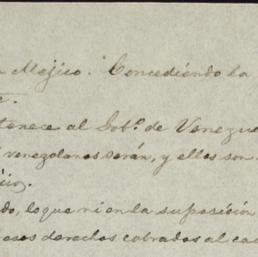 Mejico. Concediendo la
tenece al Gob.º de Venezue
venezolanos serán, y ellos son
do, lo que ni en la suposicion
esos derechos cobrados al ca